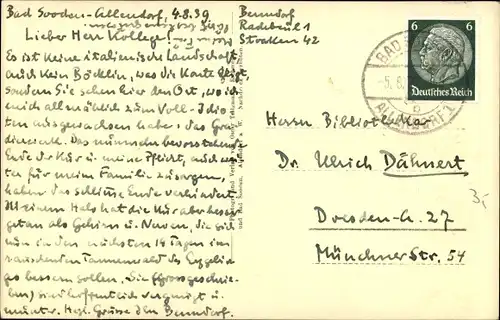 Bad Sooden-Allendorf, 4.8.39
Lieber Herr Kollege!
Es ist keine italienische Landschaft,
auch kein Böcklin, was die Karte zeigt,
sondern Sie sehen hier den Ort, wo ich
mich allmählich zum Voll-Idio
ten ausgewachsen habe: das Gra
dierwerk. Das nunmehr bevorstehende
Ende der Kur u. meine Pflicht, auch
für meine Familie zu sorgen,
haben das schlimme Ende verhindert.
Meinem Hals hat die Kur aber besser
getan als Gehirn u. Nerven, die sich
nun in den nächsten 14 Tagen im
rauschenden Tannenwald des
bessern sollen. Sie (gross geschrie-
ben) sind hoffentlich vergnügt u.
munter. Herzl. Grüsse Ihr Benndorf.
Benndorf
Radebeul 1
Strasse 42
6 6
Deutsches Reich
BAD
-5.8.
ALLENDORF
Herrn Bibliothekar
Dr. Ulrich Dähnert
Dresden-A. 27
Münchner Str. 54
3,-